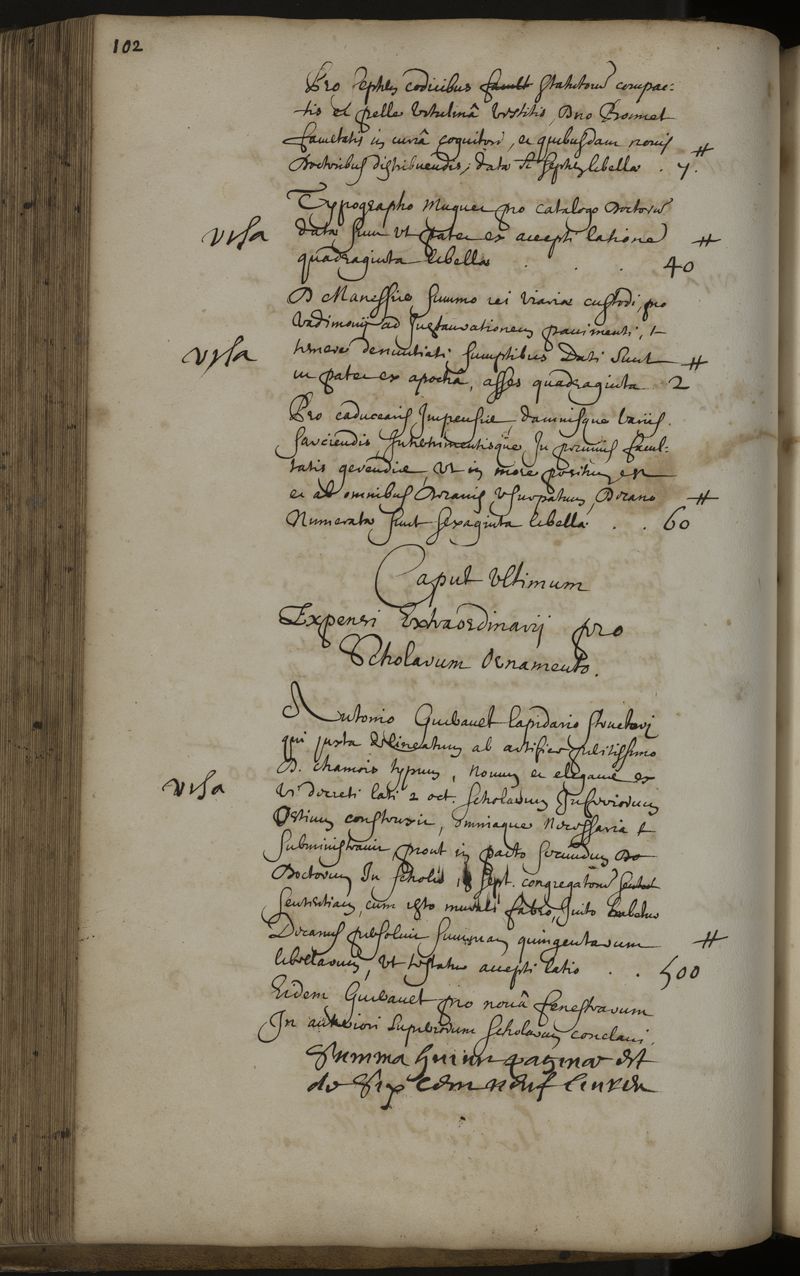 102
Pro septem codicibus facult statutorū compac-
tis et pelle vitulinâ vestitis, Dno Promet
facultatis in curiâ cognitori, et quibusdam novis
Doctoribus distribuendis, data st septem libellæ . 7. ₶
Typographo Muguet pro catalogo Doctorū
visa data sunt ut patet ex accepti latione
quadraginta libellæ . . . 40 ₶
D Manessier summo rei viariæ custodi, pro
vadimonij ad instaurationem pavimenti, t
visa temere denuntiati sumptibus dati sunt
ut patet ex apochâ, asses quadraginta 2 ₶
Pro caduceariis impensis, damnisque variis
sarciendis, intertrimentisque in pecuniis facul-
tatis gerendis, ut in more positum est
et ab omnibus Decanis usurpatum, Decano
Numeratæ sunt sexaginta libellæ . . 60 ₶
Caput ultimum
Expensi Extraordinarij pro
Scholarum Ornamento.
Antonio Guibauet lapidario structori
qui juxta delineatum ab artifice peritissimo
D. Chamois typum, novum et elegans ex
visa vi decreti lati 2 oct. scholarum inferiorum
Ostium construxit, omniaque necessaria t
subministravit prout in pacto secundum Do
Doctorum in scholis sept. congregatorū
sententiam, cum isto murali fabro, inito habetur
Decanus persolvit summam quingentarum
libellarum, ut testatur accepti latio . . 500 ₶
Eidem Guibauet pro novâ fenestrarum
In anteriori superiorum scholarum conclavi
Summa huius paginæ est
de Six cens neuf liures